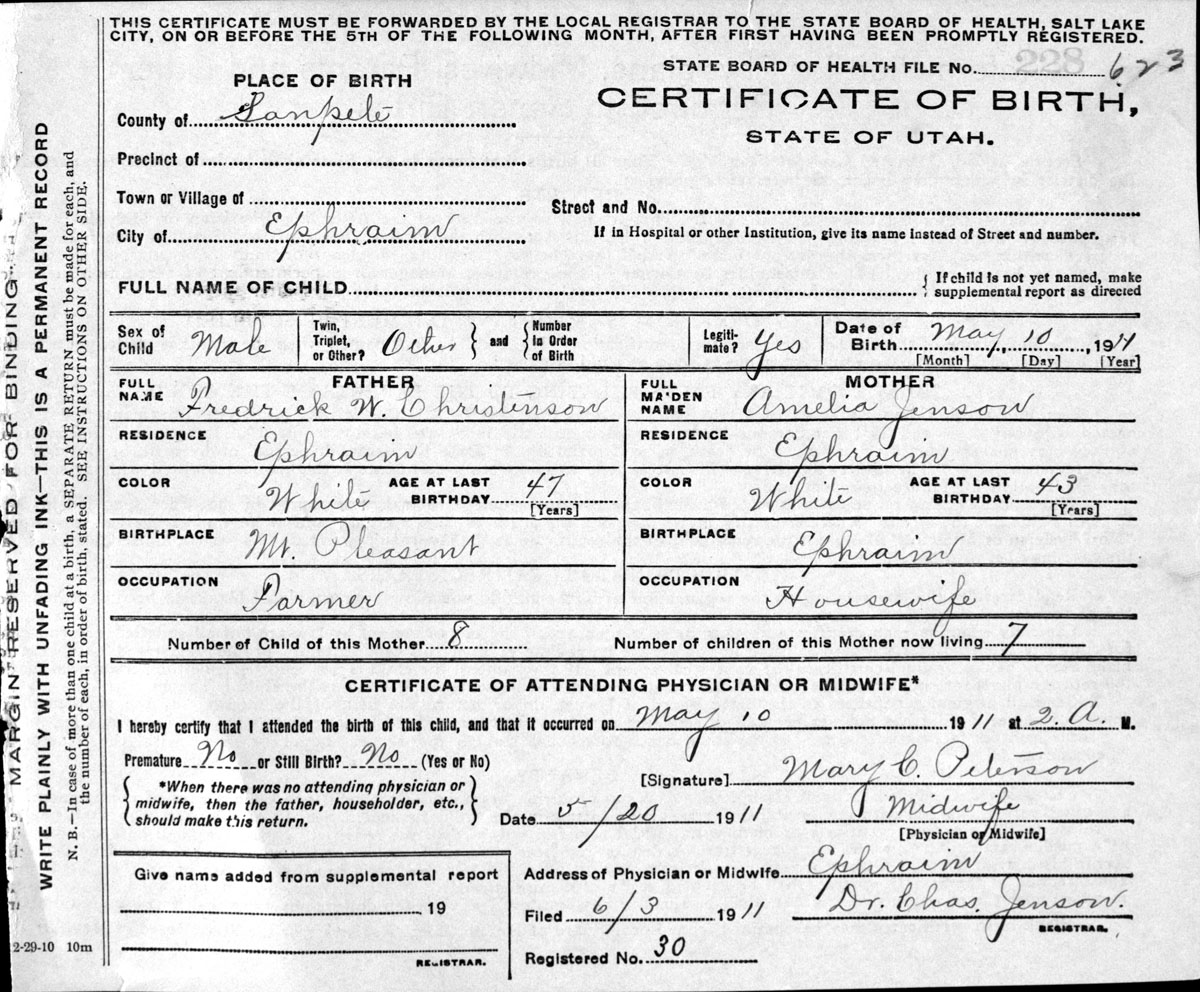 THIS CERTIFICATE MUST BE FORWARDED BY THE LOCAL REGISTRAR TO THE STATE BOARD OF HEALTH, SALT LAKE
CITY, ON OR BEFORE THE 5TH OF THE FOLLOWING MONTH, AFTER FIRST HAVING BEEN PROMPTLY REGISTERED.
STATE BOARD OF HEALTH FILE No. 228 623
PLACE OF BIRTH
CERTIFICATE OF BIRTH,
STATE OF UTAH.
County of Sanpete
Precinct of
Town or Village of
Street and No.
City of Ephraim
If in Hospital or other Institution, give its name instead of Street and number.
FULL NAME OF CHILD { If child is not yet named, make
supplemental report as directed
Sex of Child Male
Twin, Triplet, or Other? Other } and { Number in Order of Birth
Legiti-mate? Yes
Date of Birth May 10, 1911
[Month] [Day] [Year]
FATHER
FULL NAME Fredrick W. Christenson
MOTHER
FULL MAIDEN NAME Amelia Jenson
RESIDENCE Ephraim
RESIDENCE Ephraim
COLOR White AGE AT LAST BIRTHDAY 47 [Years]
COLOR White AGE AT LAST BIRTHDAY 43 [Years]
BIRTHPLACE Mt. Pleasant
BIRTHPLACE Ephraim
OCCUPATION Farmer
OCCUPATION Housewife
Number of Child of this Mother 8 Number of children of this Mother now living 7
CERTIFICATE OF ATTENDING PHYSICIAN OR MIDWIFE*
I hereby certify that I attended the birth of this child, and that it occurred on May 10 1911 at 2. A. M.
Premature No or Still Birth? No (Yes or No)
{ *When there was no attending physician or
midwife, then the father, householder, etc.,
should make this return. }
[Signature] Mary C. Peterson
Date 5/20 1911 Midwife
[Physician or Midwife]
Give name added from supplemental report
19
REGISTRAR.
Address of Physician or Midwife Ephraim
Filed 6/3 1911 Dr. Chas. Jenson.
REGISTRAR.
Registered No. 30
MARGIN RESERVED FOR BINDING
WRITE PLAINLY WITH UNFADING INK—THIS IS A PERMANENT RECORD
N. B.—In case of more than one child at a birth, a SEPARATE RETURN must be made for each, and
the number of each, in order of birth, stated. SEE INSTRUCTIONS ON OTHER SIDE.
2-29-10 10m